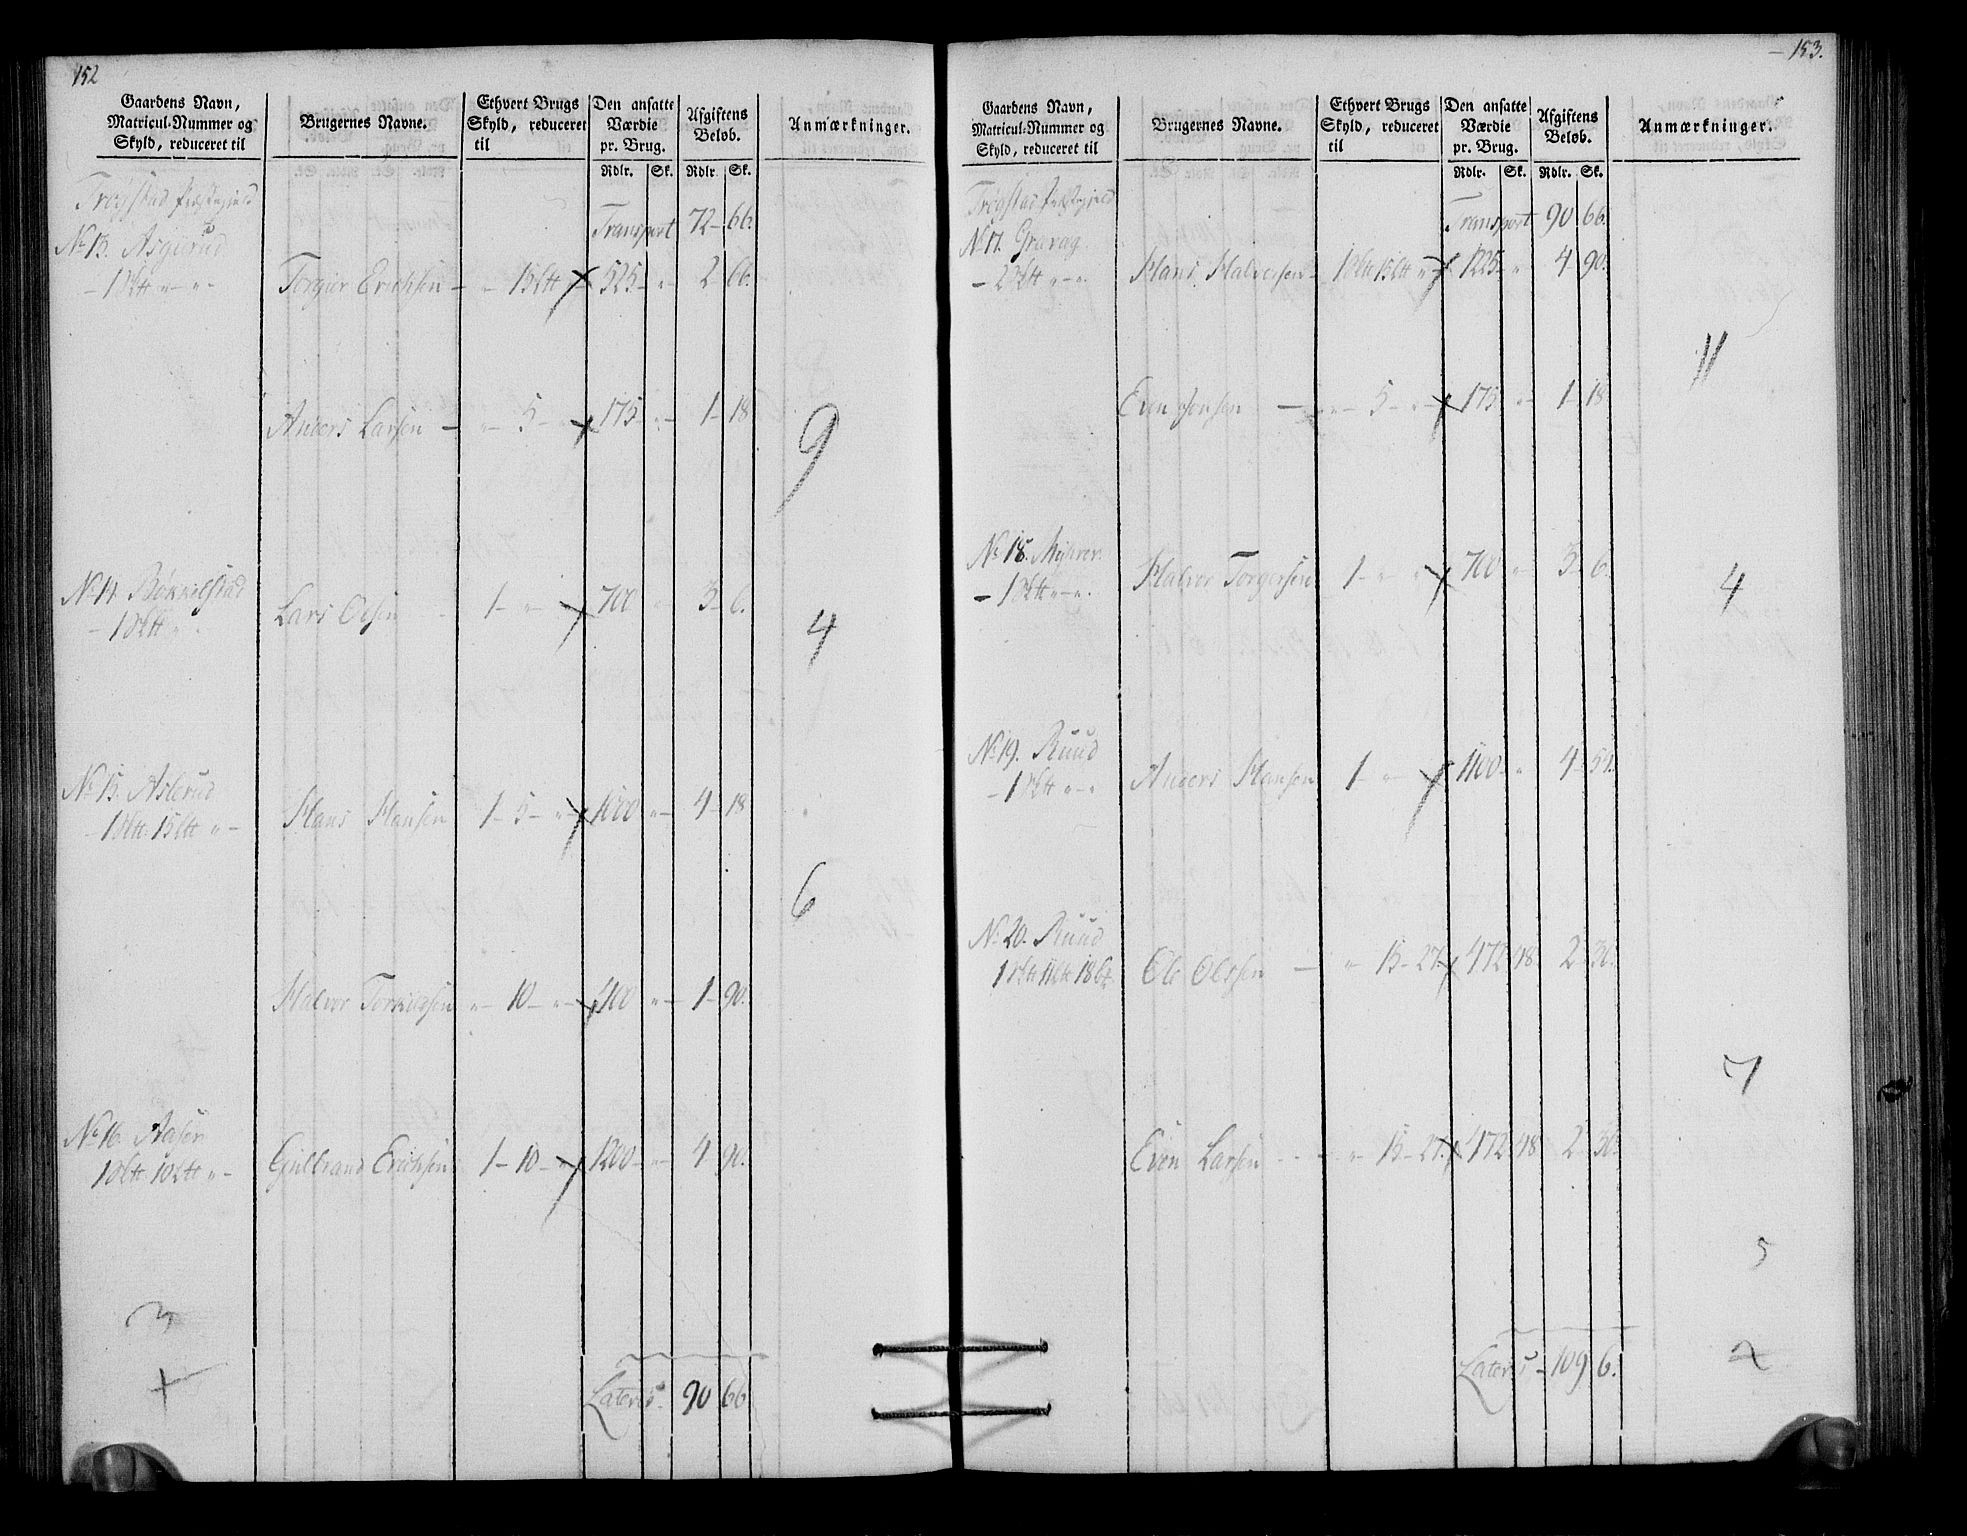 152
Gaardens Navn, Matricul-Nummer og Skyld, reduceret til
Brugernes Navne.
Ethvert Brugs Skyld, reduceret til
Den ansatte Værdie pr. Brug.
Afgiftens Beløb.
Anmærkninger.
Rdlr. Sk. Rdlr. Sk.
Trøgstad Præstegield
Transport 72 - 66.
No 13. Asgierud
- 1 Sktt " - " -
Torgier Erichsen - " - 15 ltt " 525 - " - 2 - 66.
Anders Larsen - " - 5 - " 175 - " - 1 - 18
9
No 14. Bøkkelstad
- 1 Sktt "
Lars Olsen 1 - " - 700 " - 3 - 6.
4
No 15. Aslerud
- 1 Sktt 15 ltt " -
Hans Hansen 1 - 5 - " 1000 " - 4 - 18
6
Halvor Torkildsen " - 10 - " - 400 " - 1 - 90.
No 16. Aasen
1 Sktt 10 ltt " -
Gulbrand Erichsen 1 - 10 - 1200 - " - 4 90.
3
+
Lateris. 90 66
153.
Gaardens Navn, Matricul-Nummer og Skyld, reduceret til
Brugernes Navne.
Ethvert Brugs Skyld, reduceret til
Den ansatte Værdie pr. Brug.
Afgiftens Beløb.
Anmærkninger.
Rdlr. Sk. Rdlr. Sk.
Trøgstad Præstegield
Transport 90 66.
No 17. Gravag
- 2 Sktt " - ".
Hans Halvorsen - 1 Sktt 15 ltt " 1225 - " 4 90.
11
Even Jensen - " - 5 - " - 175 " - 1 - 18
No 18. Myhrer
- 1 Sktt " - ".
Halvor Torgersen 1 - " " 700 " 3 - 6.
4
No 19. Ruud
- 1 Sktt " - "
Anders Hansen 1 - " - 1100 - " 4 - 54.
No 20. Ruud
1 Sktt 11 ltt 18 Sk.
Ole Olssen - " 15 - 27. 472 48 2 - 30.
7
Even Larsen - - " 15 - 27. 472 48 2 - 30.
5
Lateris - 109 6.
2